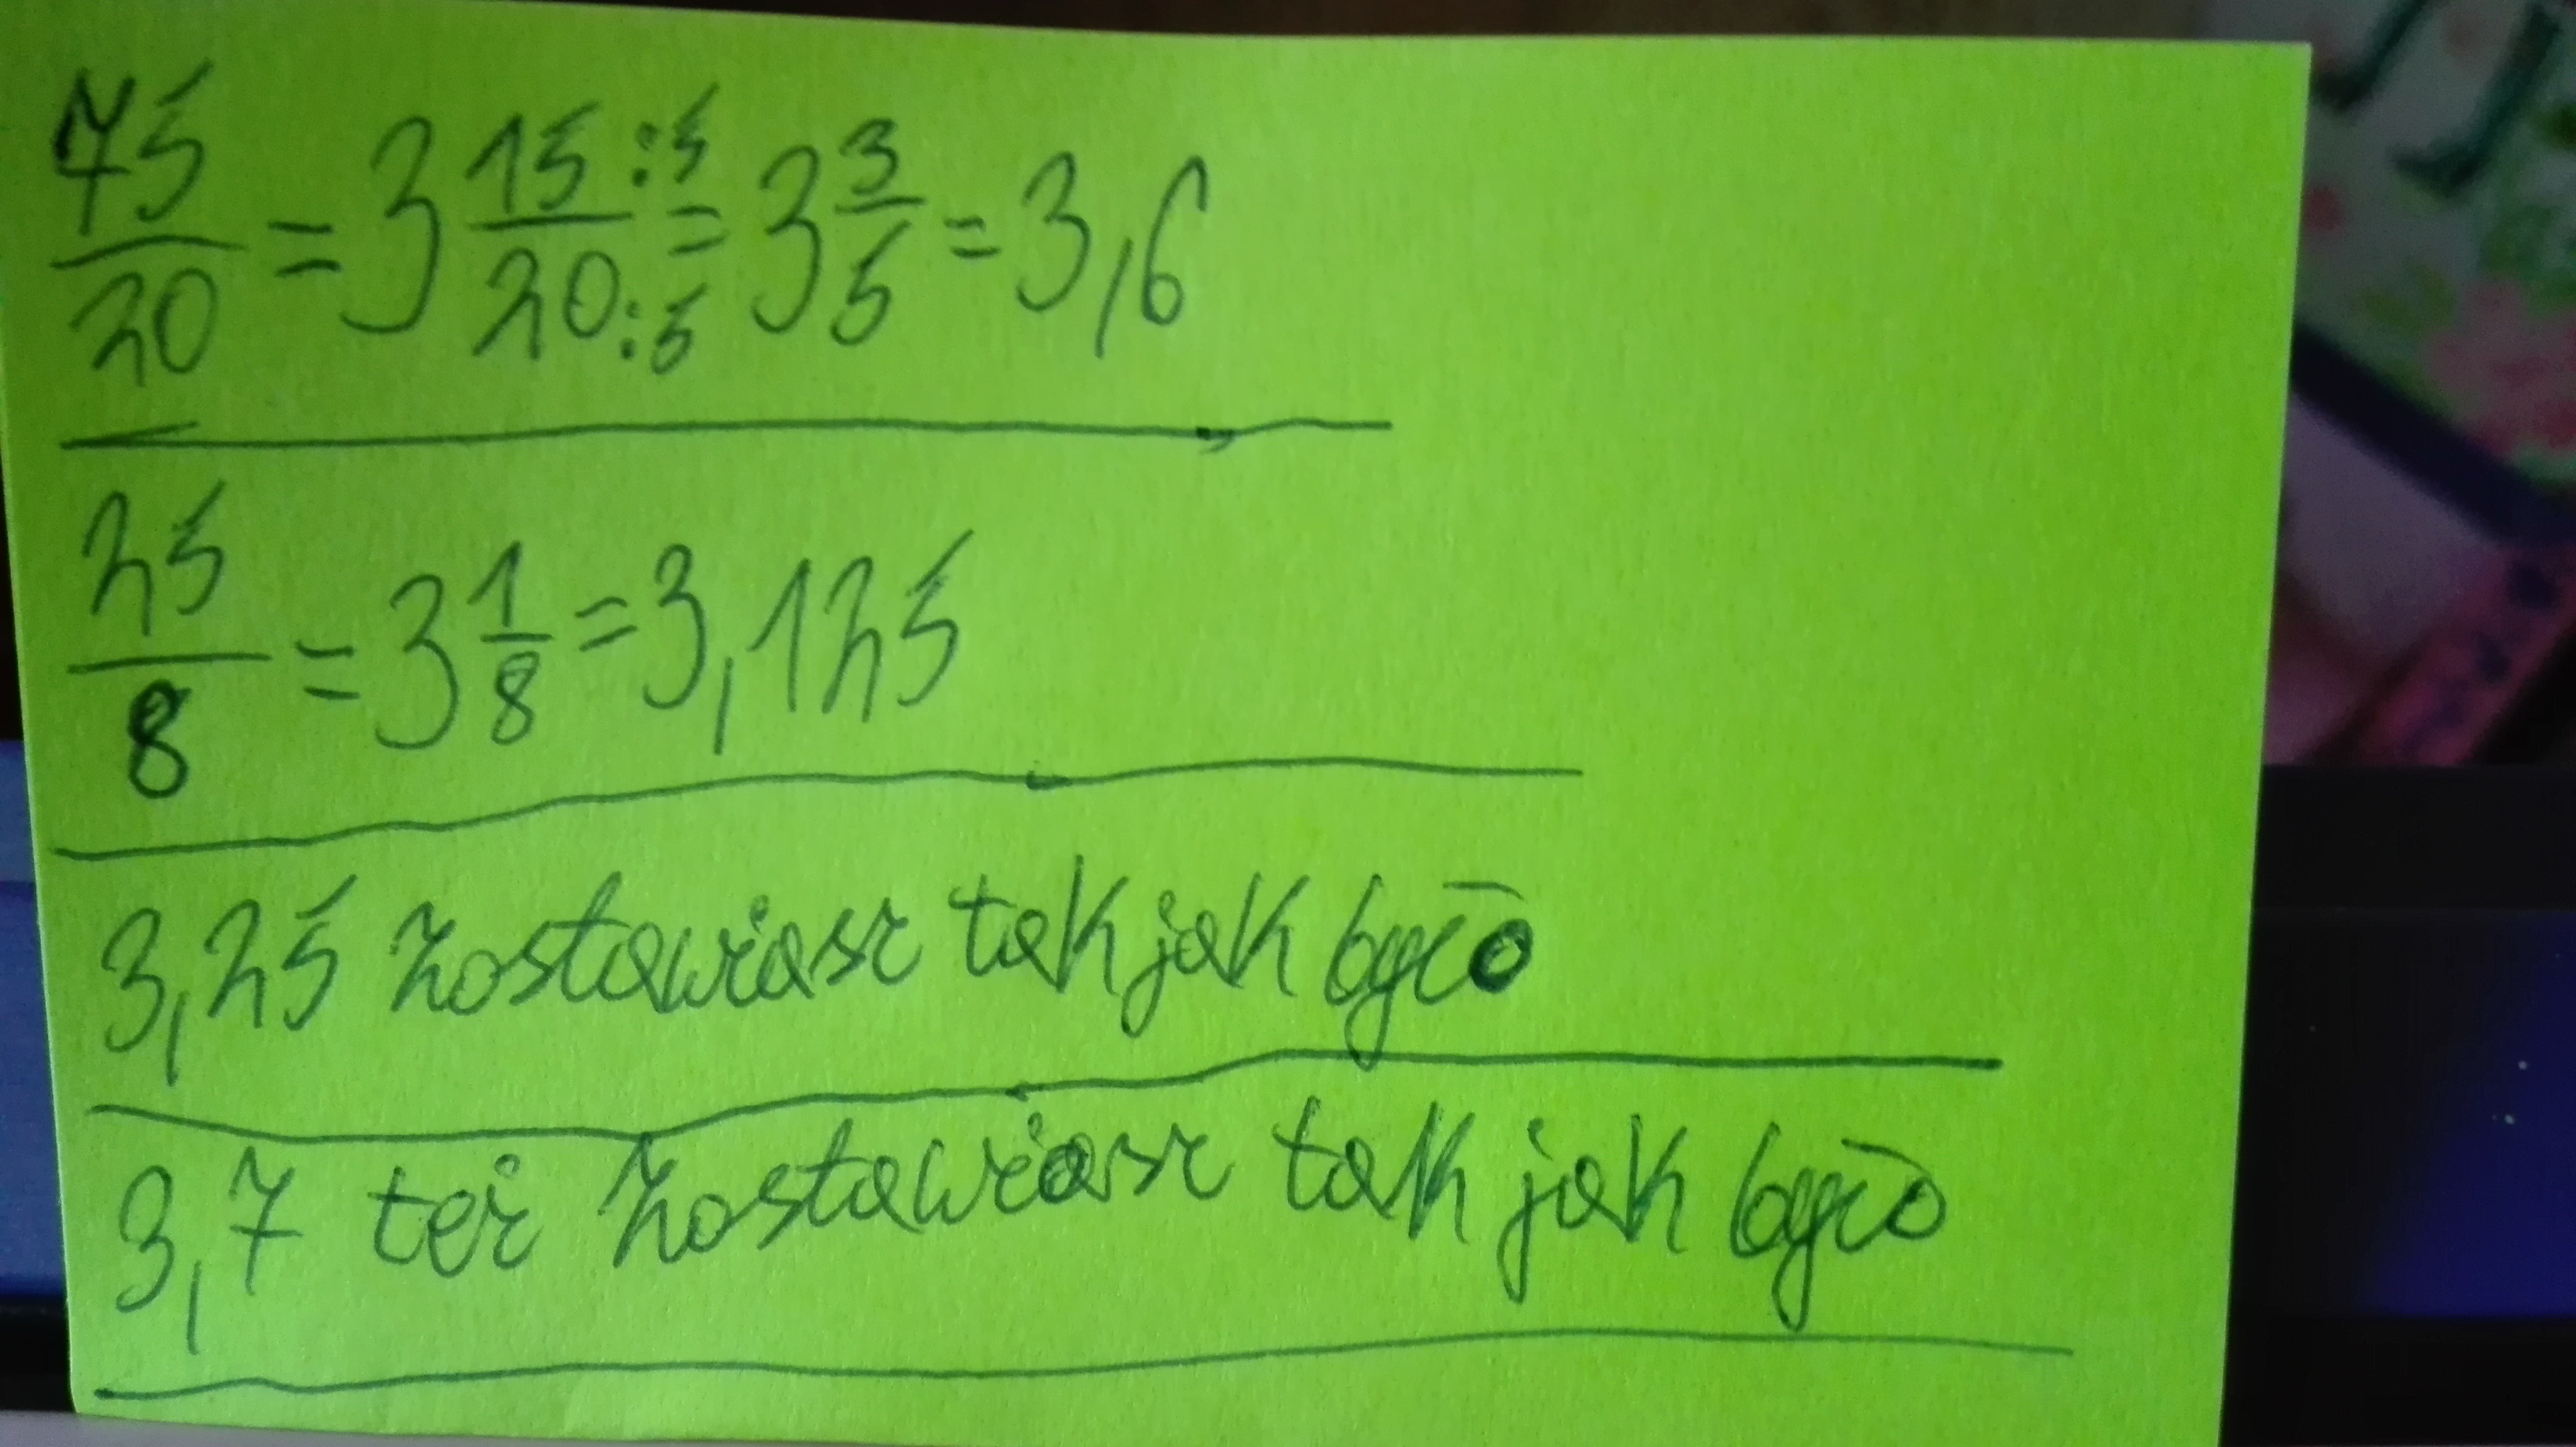 75/20 = 3 15:5/20:5 = 3 3/5 = 3,6
25/8 = 3 1/8 = 3,125
3,25 zostawiasz tak jak było
3,7 też zostawiasz tak jak było